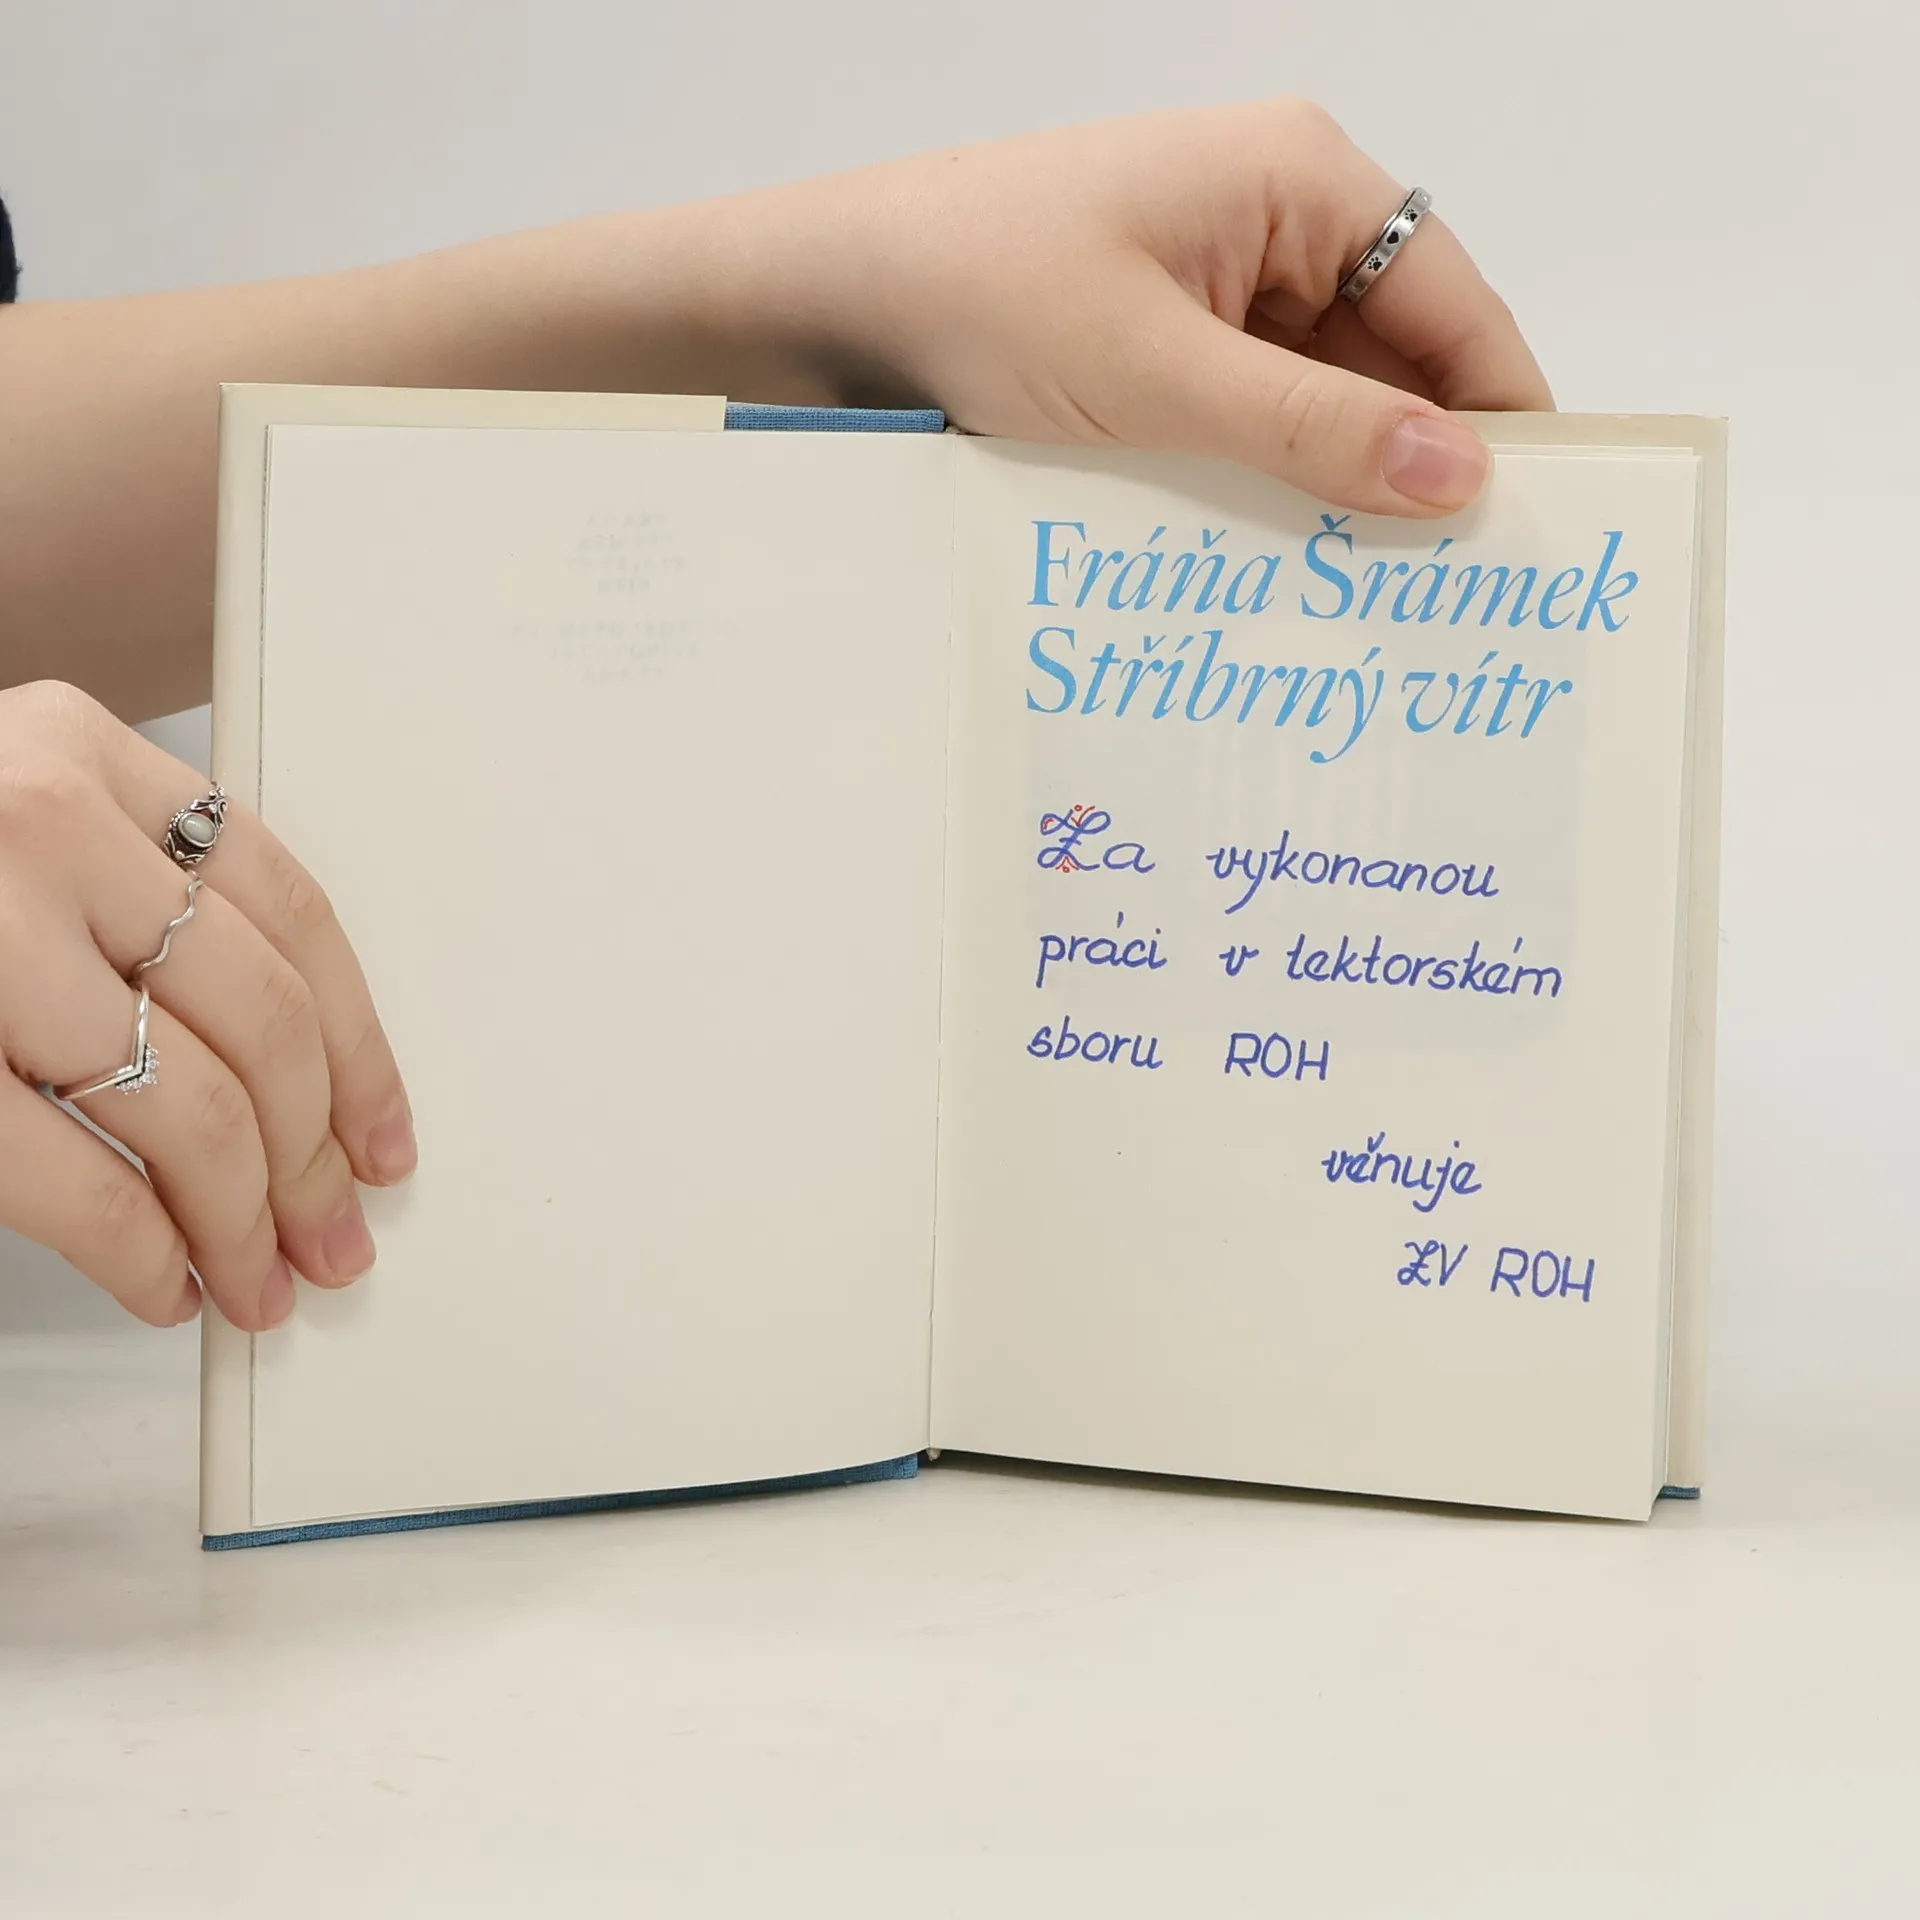 Fráňa Šrámek
Stříbrný vítr
Za vykonanou
práci v lektorském
sboru ROH
věnuje
ZV ROH